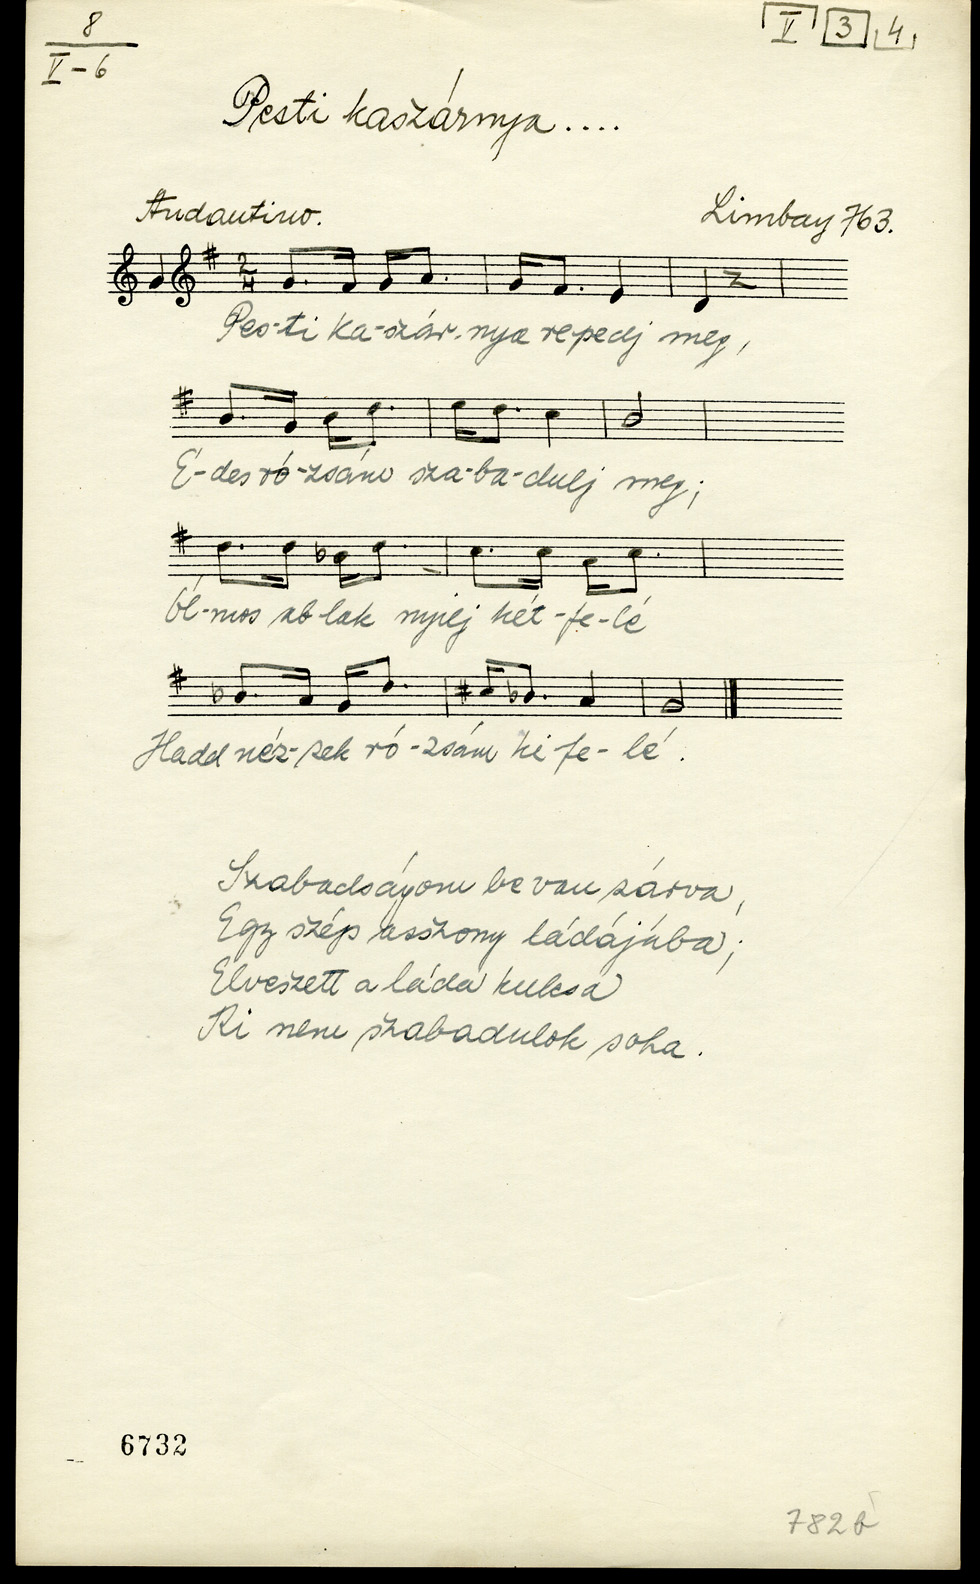 8
V-6
V 3 4
Pesti kaszárnya....
Andantino.
Limbay 763.
2
4
Pes-ti ka-szár-nya repedj meg,
É-des ró-zsám sza-ba-dulj meg;
Ól-mos ab-lak nyílj két-fe-lé
Hadd néz-zek ró-zsám ki fe-lé.
Szabadságom be van zárva,
Egy szép asszony ládájába;
Elveszett a láda kulcsa
Ki nem szabadulok soha.
6732
782b